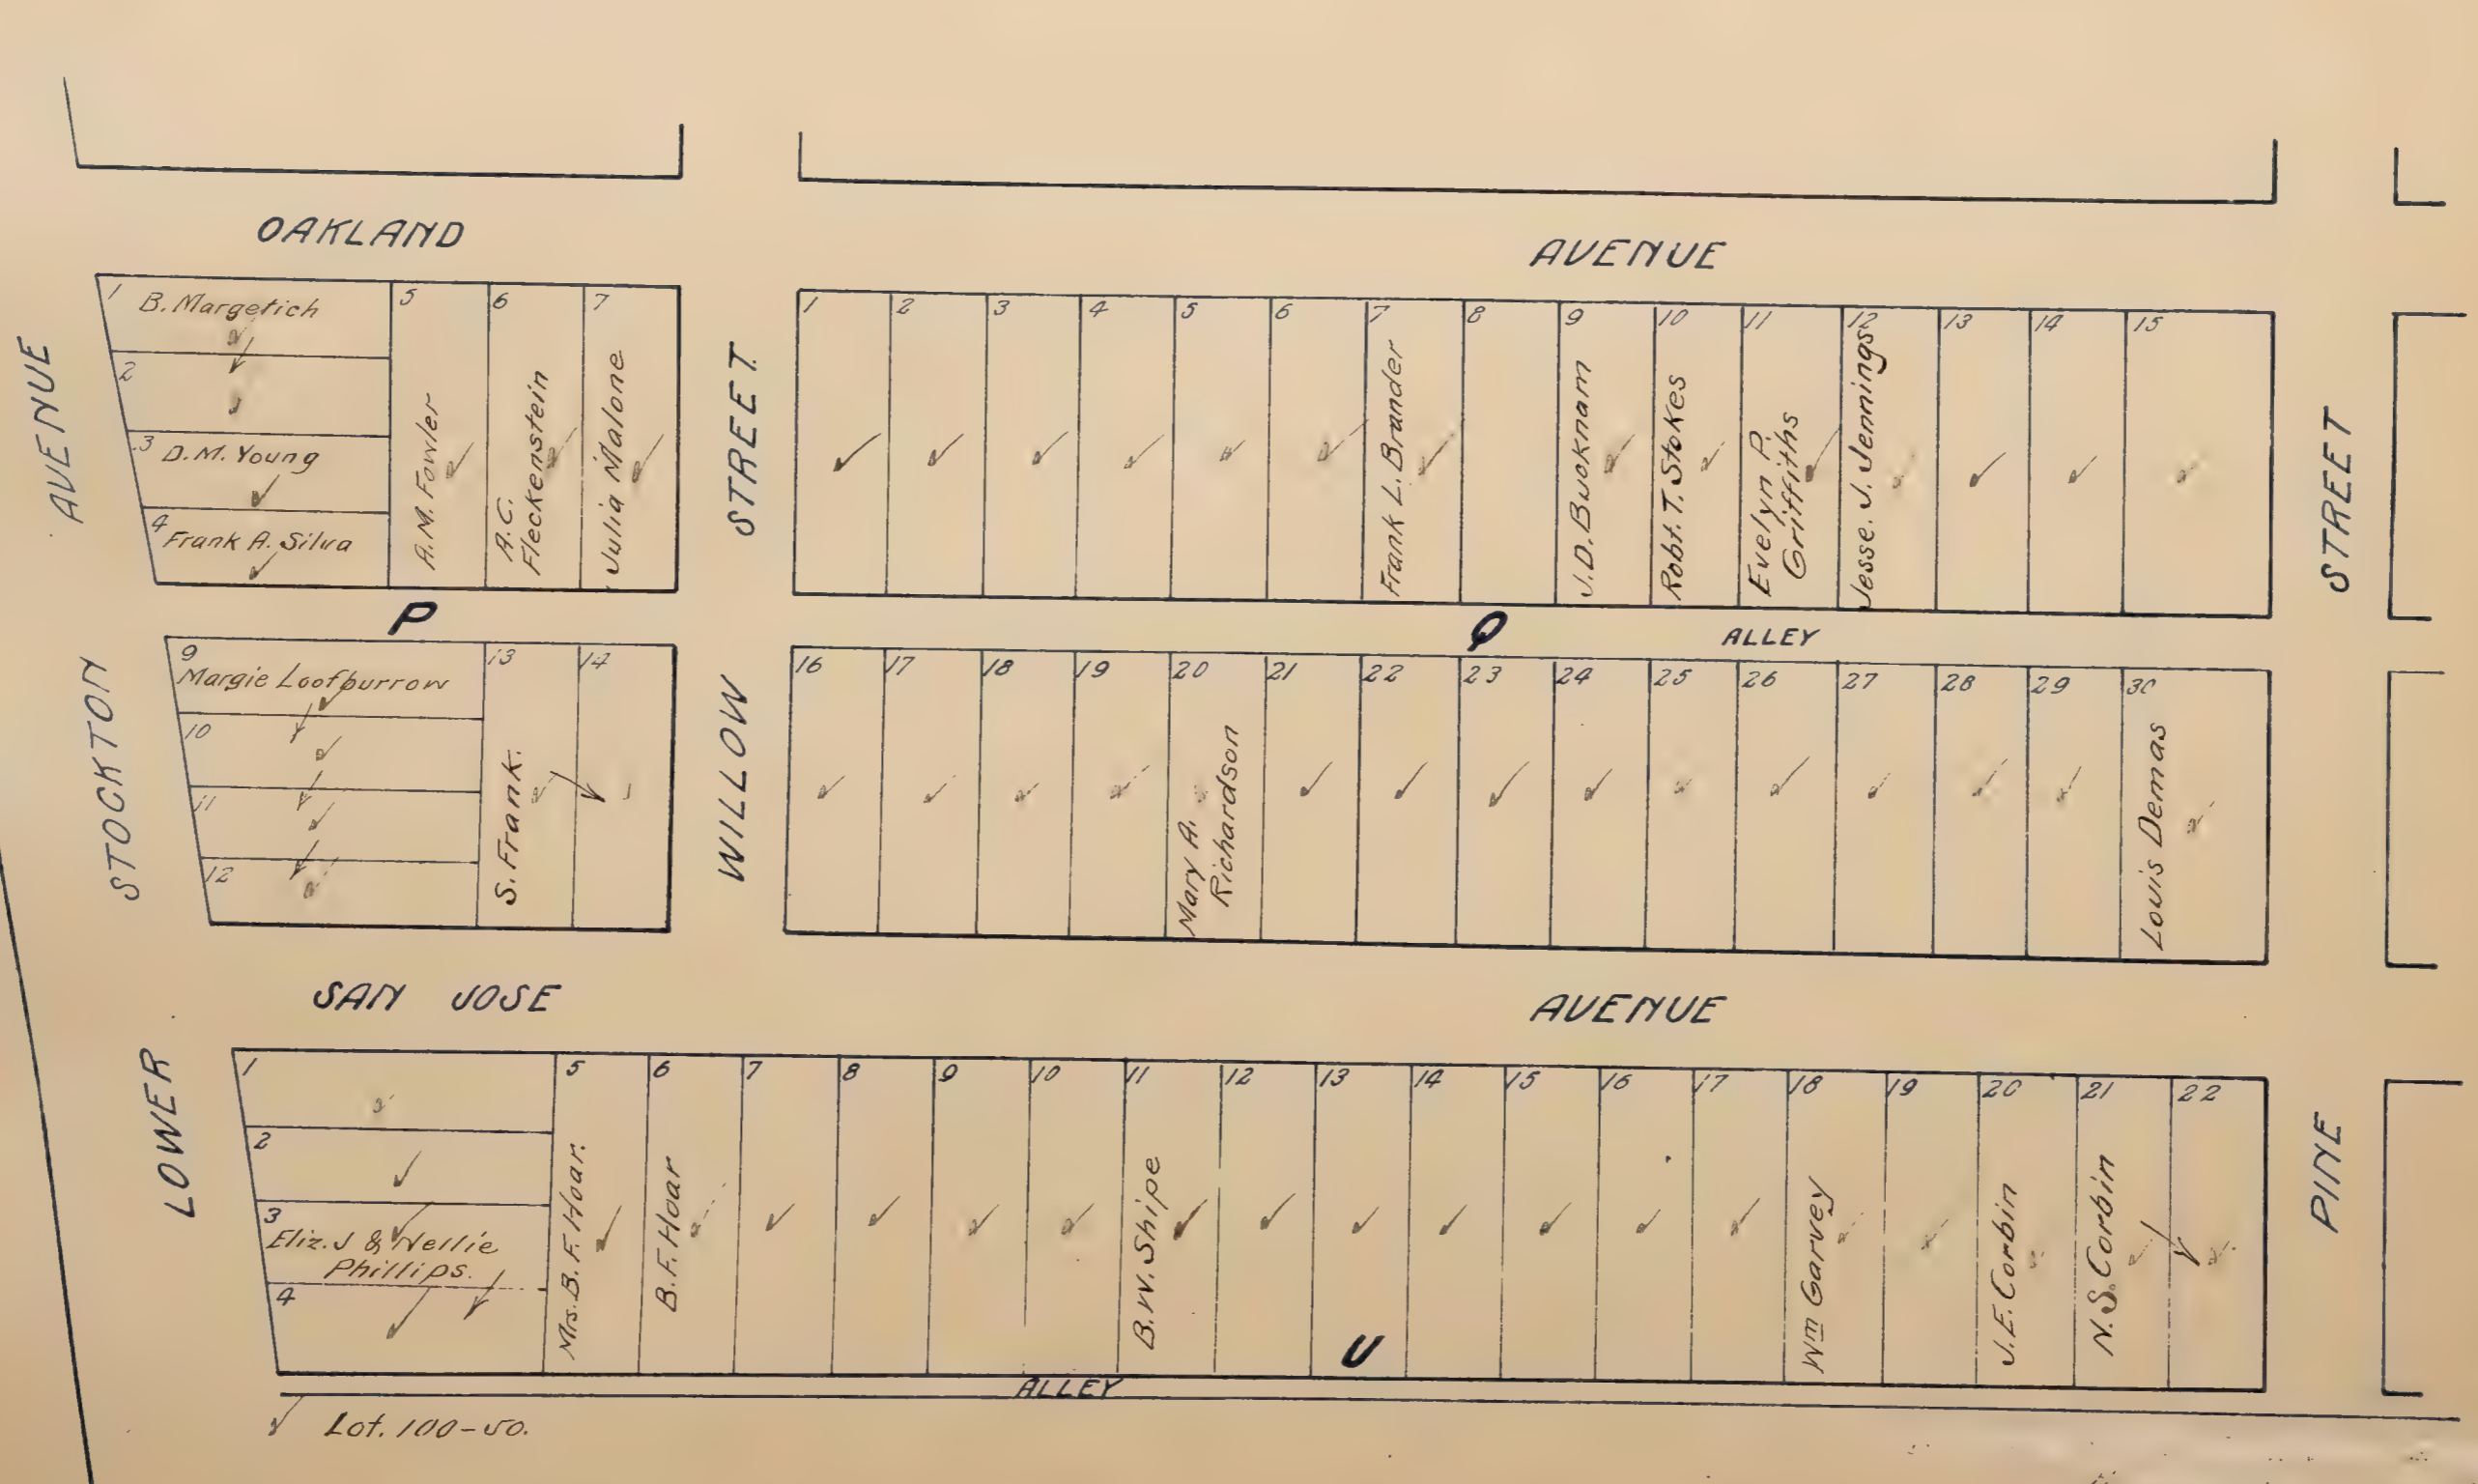 OAKLAND AVENUE
1 B. Margetich
2
3 D.M. Young
4 Frank A. Silva
5 A.M. Fowler
6 A.C.
Fleckenstein
7 Julia Malone
P
9 Margie Loofburrow
10
11
12
13 S. Frank.
14
AVENUE
STOCKTON
LOWER
STREET
WILLOW
1
2
3
4
5
6
7 Frank L. Brander
8
9 J.D. Bucknam
10 Robt. T. Stokes
11 Evelyn P.
Griffiths
12 Jesse. J. Jennings
13
14
15
Q
ALLEY
16
17
18
19
20 Mary A.
Richardson
21
22
23
24
25
26
27
28
29
30 Louis Demas
STREET
PINE
SAN JOSE AVENUE
1
2
3 Eliz. J & Nellie
Phillips.
4
5 Mrs. B.F. Hoar.
6 B.F. Hoar
7
8
9
10
11 B.W. Shipe
12
13
14
15
16
17
18 Wm Garvey
19
20 J.E. Corbin
21 N.S. Corbin
22
U
ALLEY
Lot. 100-50.